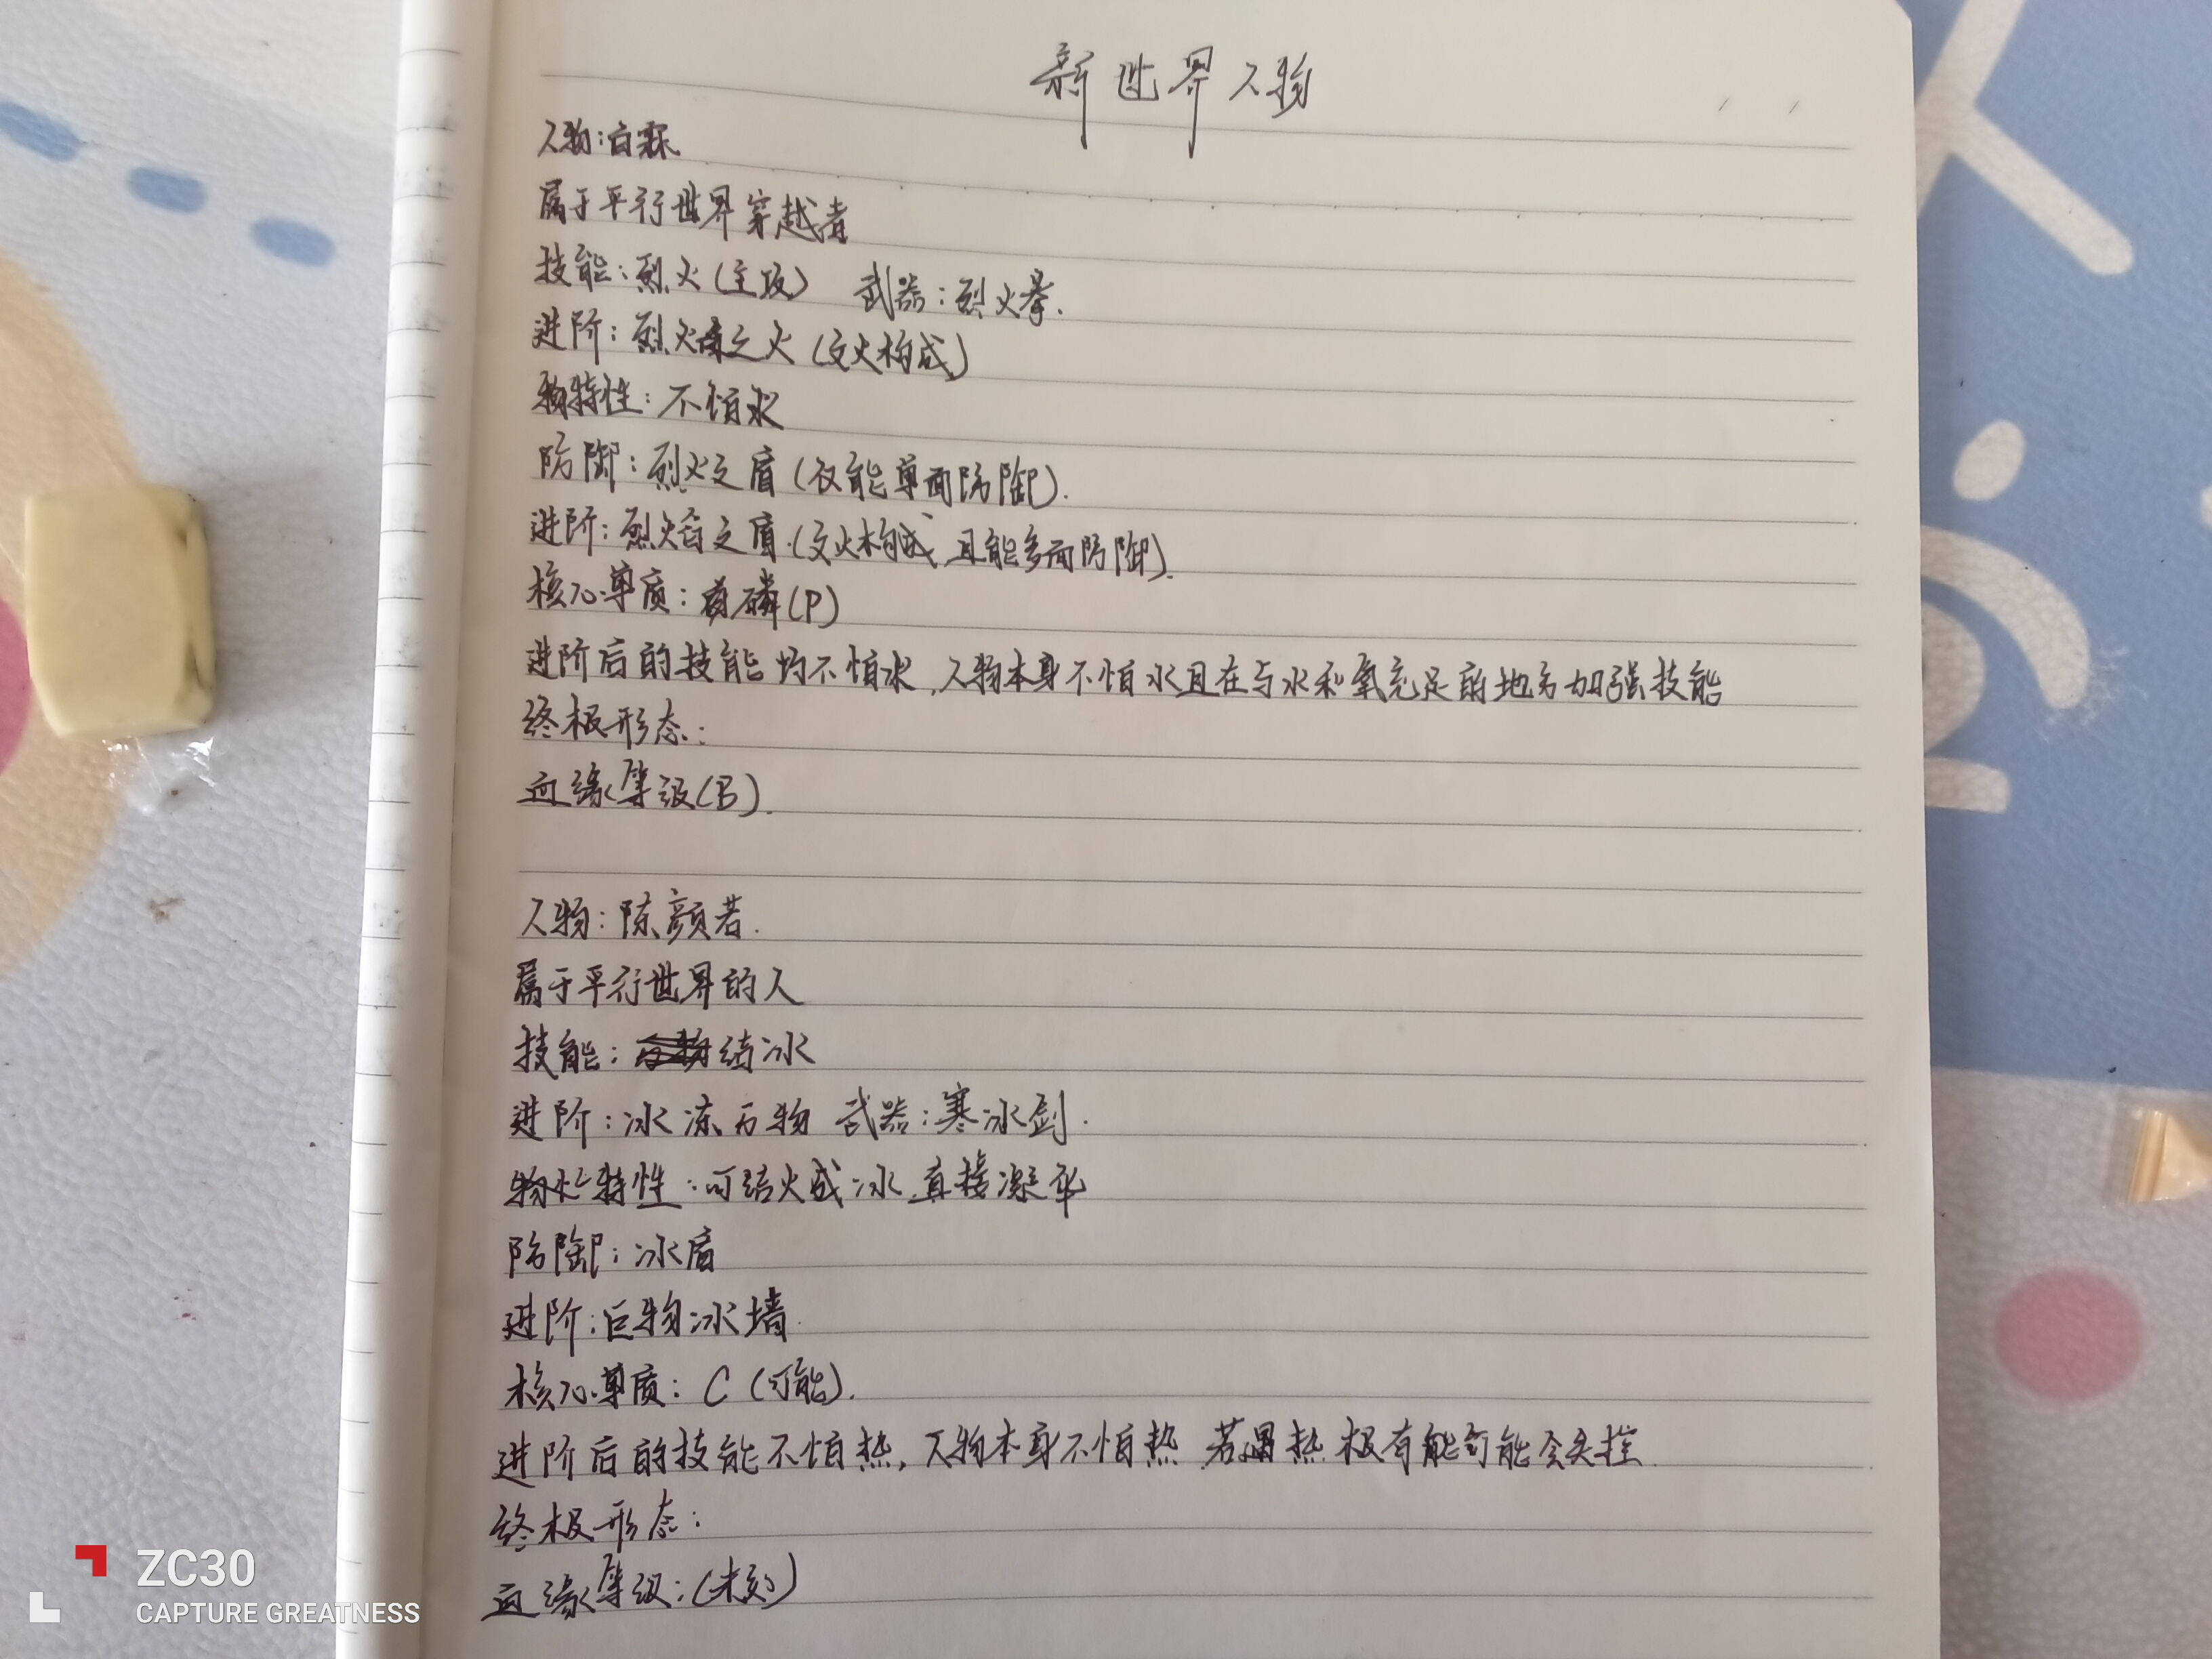 新世界人物
人物:白霖
属于平行世界穿越者
技能:烈火(主攻) 武器:烈火拳.
进阶:烈火之火(文火构成)
物特性:不怕水
防御:烈火之盾(仅能单面防御).
进阶:烈焰之盾.(文火构成 且能多面防御).
核心导质:磷(P)
进阶后的技能均不怕水,人物本身不怕水且在与水和氧充足的地方加强技能
终极形态:
血缘等级(B).
人物:陈颜若.
属于平行世界的人
技能:结冰
进阶:冰冻万物 武器:寒冰剑.
物化特性:可结火成冰,直接凝华
防御:冰盾
进阶:巨物冰墙.
核心导质:C(可能).
进阶后的技能不怕热,人物本身不怕热 若遇热 极有能可能会失控.
终极形态:
血缘等级:(未知)
ZC30
CAPTURE GREATNESS